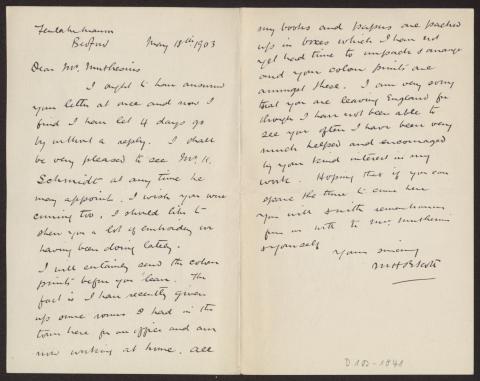 Fenlake Manor
Bedford May 18th 1903
Dear Mr. Muthesius
I ought to have answered
your letter at once and now I
find I have let 4 days go
by without a reply. I shall
be very pleased to see Mr. K.
Schmidt at any time he
may appoint. I wish you were
coming too. I should like to
shew you a lot of embroidery we
having been doing lately.
I will certainly send the colour
prints before you leave. The
fact is I have recently given
up some rooms I had in the
town here for an office and am
now working at home. All
my books and papers are packed
up in boxes which I have not
yet had time to unpack & arrange
and your colour prints are
amongst these. I am very sorry
that you are leaving England for
though I have not been able to
see you often I have been very
much helped and encouraged
by your kind interest in my
work. Hoping that if you can
spare the time to come here
you will & with remembrances
from us both to Mrs. Muthesius
& yourself
Yours sincerely
M H B Scott
D 102-1841